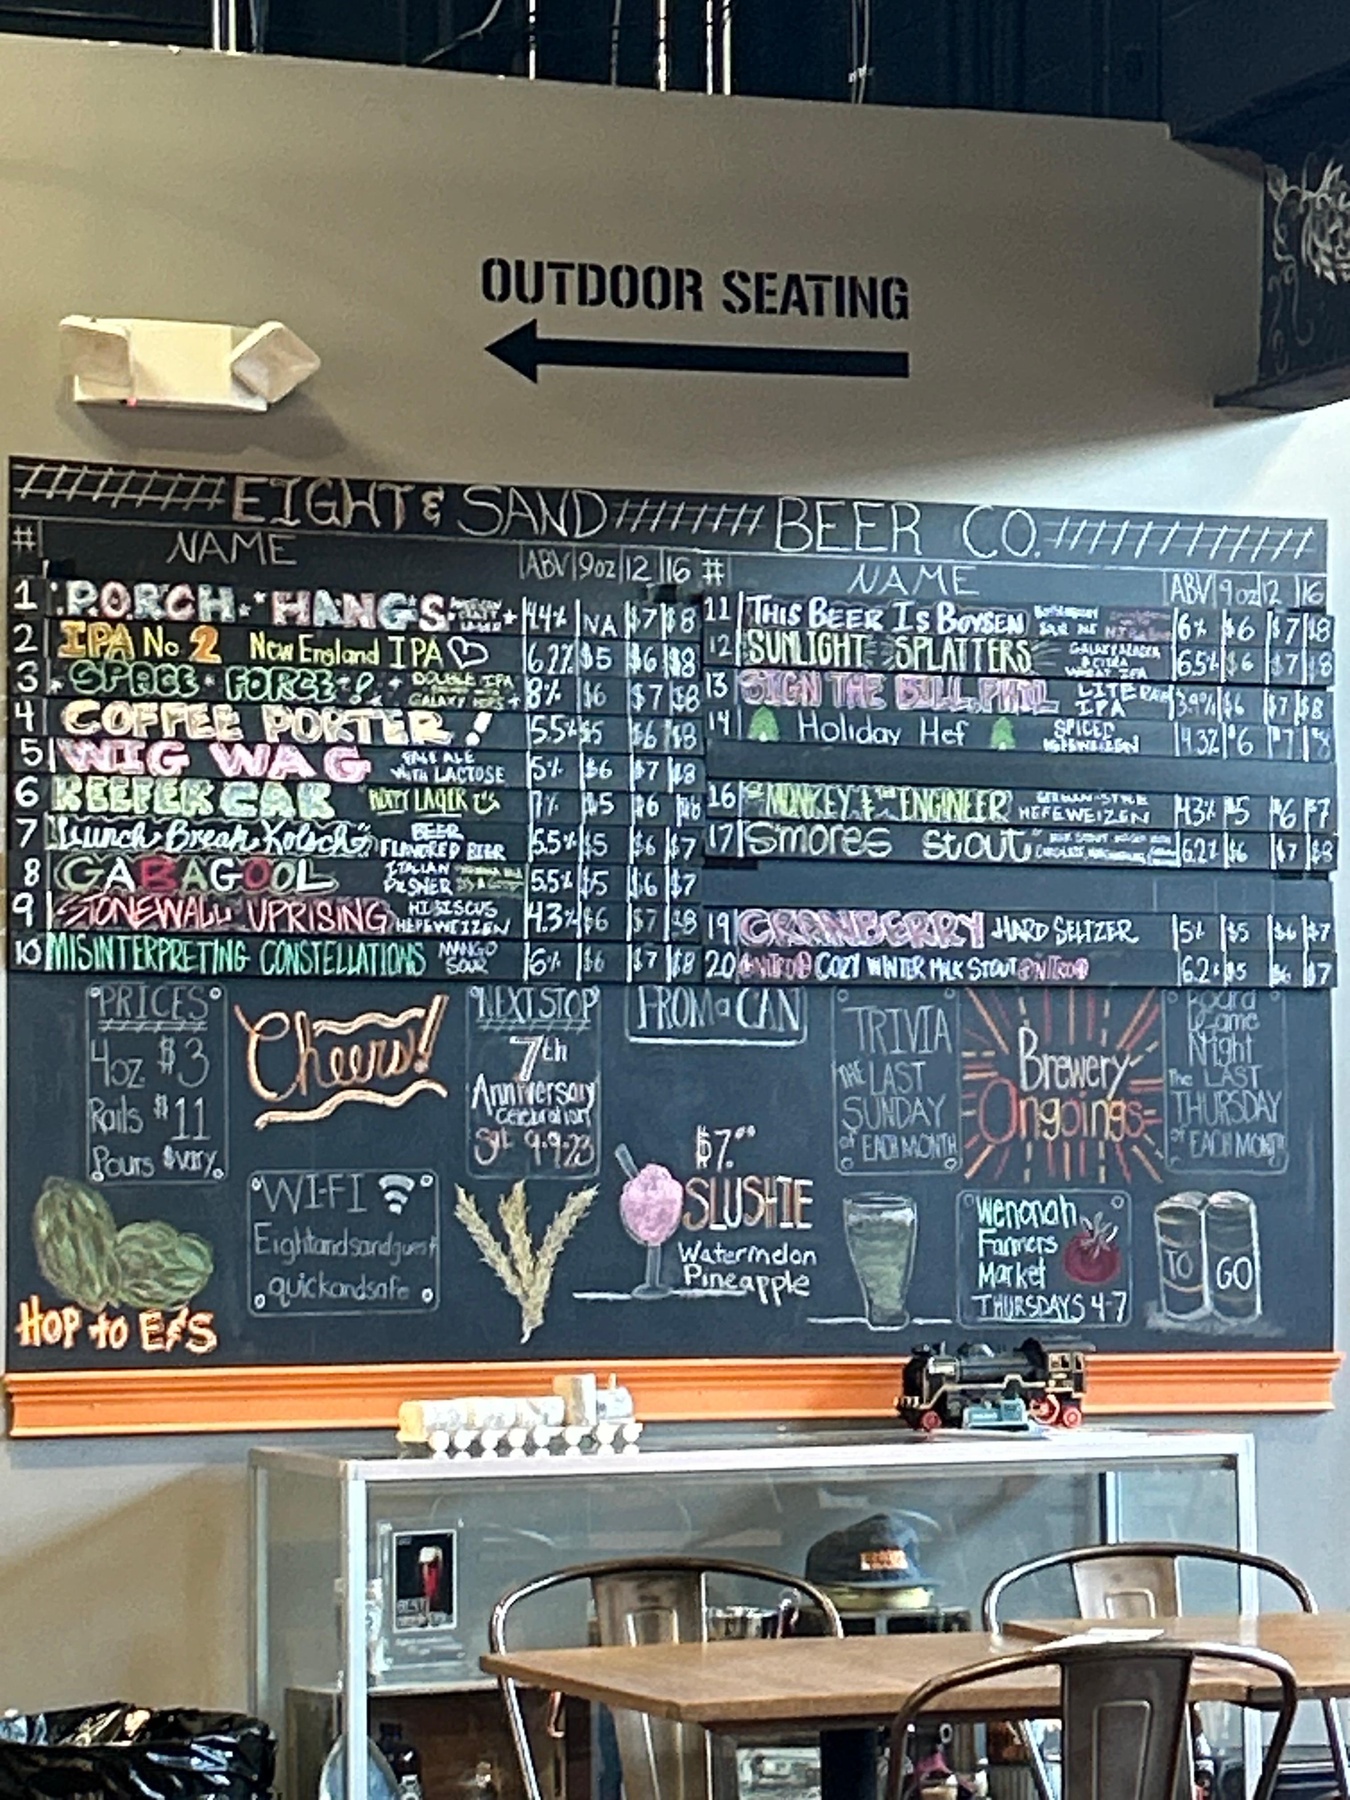 OUTDOOR SEATING
EIGHT & SAND BEER CO.
# NAME ABV 9oz 12 16
1 PORCH HANGS 4.4% NA $7 $8
2 IPA No 2 New England IPA 6.2% $5 $6 $8
3 SPACE FORCE! DOUBLE IPA GALAXY HOPS 8% $6 $7 $8
4 COFFEE PORTER! 5.5% $5 $6 $8
5 WIG WAG PALE ALE WITH LACTOSE 5% $6 $7 $8
6 REEFER CAR HOPPY LAGER 7% $5 $6
7 Lunch Break Kolsch BEER FLAVORED BEER 5.5% $5 $6 $7
8 GABAGOOL ITALIAN PILSNER 5.5% $5 $6 $7
9 STONEWALL UPRISING HIBISCUS HEFEWEIZEN 4.3% $6 $7 $8
10 MISINTERPRETING CONSTELLATIONS MANGO SOUR 6% $6 $7 $8
# NAME ABV 9oz 12 16
11 THIS BEER IS BOYSEN 6% $6 $7 $8
12 SUNLIGHT SPLATTERS & CITRA WHEAT IPA 6.5% $6 $7 $8
13 SIGN THE BILL, PHIL LITE IPA 3.9% $6 $7 $8
14 Holiday Hef SPICED HEFEWEIZEN 4.3% $6 $7 $8
16 MONKEY & THE ENGINEER GERMAN-STYLE HEFEWEIZEN 4.3% $5 $6 $7
17 S'mores Stout 6.2% $6 $7 $8
19 CRANBERRY HARD SELTZER 5% $5 $6 $7
20 NITRO COZY WINTER MILK STOUT NITRO 6.2% $5 $6 $7
PRICES
4oz $3
Rails $11
Pours $vary
Cheers!
NEXT STOP
7th
Anniversary
Celebration
Sat 9.9.23
FROM a CAN
TRIVIA
THE LAST
SUNDAY
OF EACH MONTH
Brewery
Ongoings
Board
Game
Night
The LAST
THURSDAY
OF EACH MONTH
WI-FI
Eightandsandguest
quickandsafe
$7.00
SLUSHIE
Watermelon
Pineapple
Wenonah
Farmers
Market
THURSDAYS 4-7
TO GO
HOP to E&S